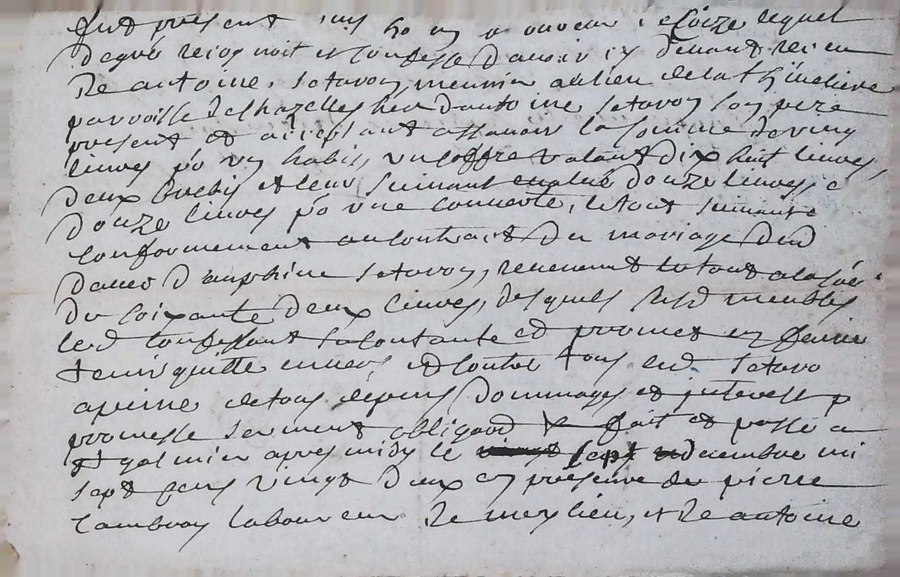 fut présent
de gré recognoit et confesse d'avoir cy devant receu
De antoine setavoy meunier au lieu de la thineliere
parroisse de Chazelles her d'antoine setavoy son pere
present et acceptant assavoir la somme de ving
livres po un habis, un coffre valant dix huit livres,
deux brebis et leur suivant douze livres, e
douze livres po une couverte, le tout suivant e
conformement au contrait de mariage dud
d'auphine setavoy, revenant le tout a la
de soixante deux livres, desquels susd meubles
led confessant sa contante et promet en
tenir quitte envers et contre tous led setavo
a peine de tous depens dommages et interest p
promesse serment obligaon fait et passé a
st galmier apres midy le sept decembre mi
sept cens vingt deux en presence de pierre
laboureur De meylieu, et De antoine